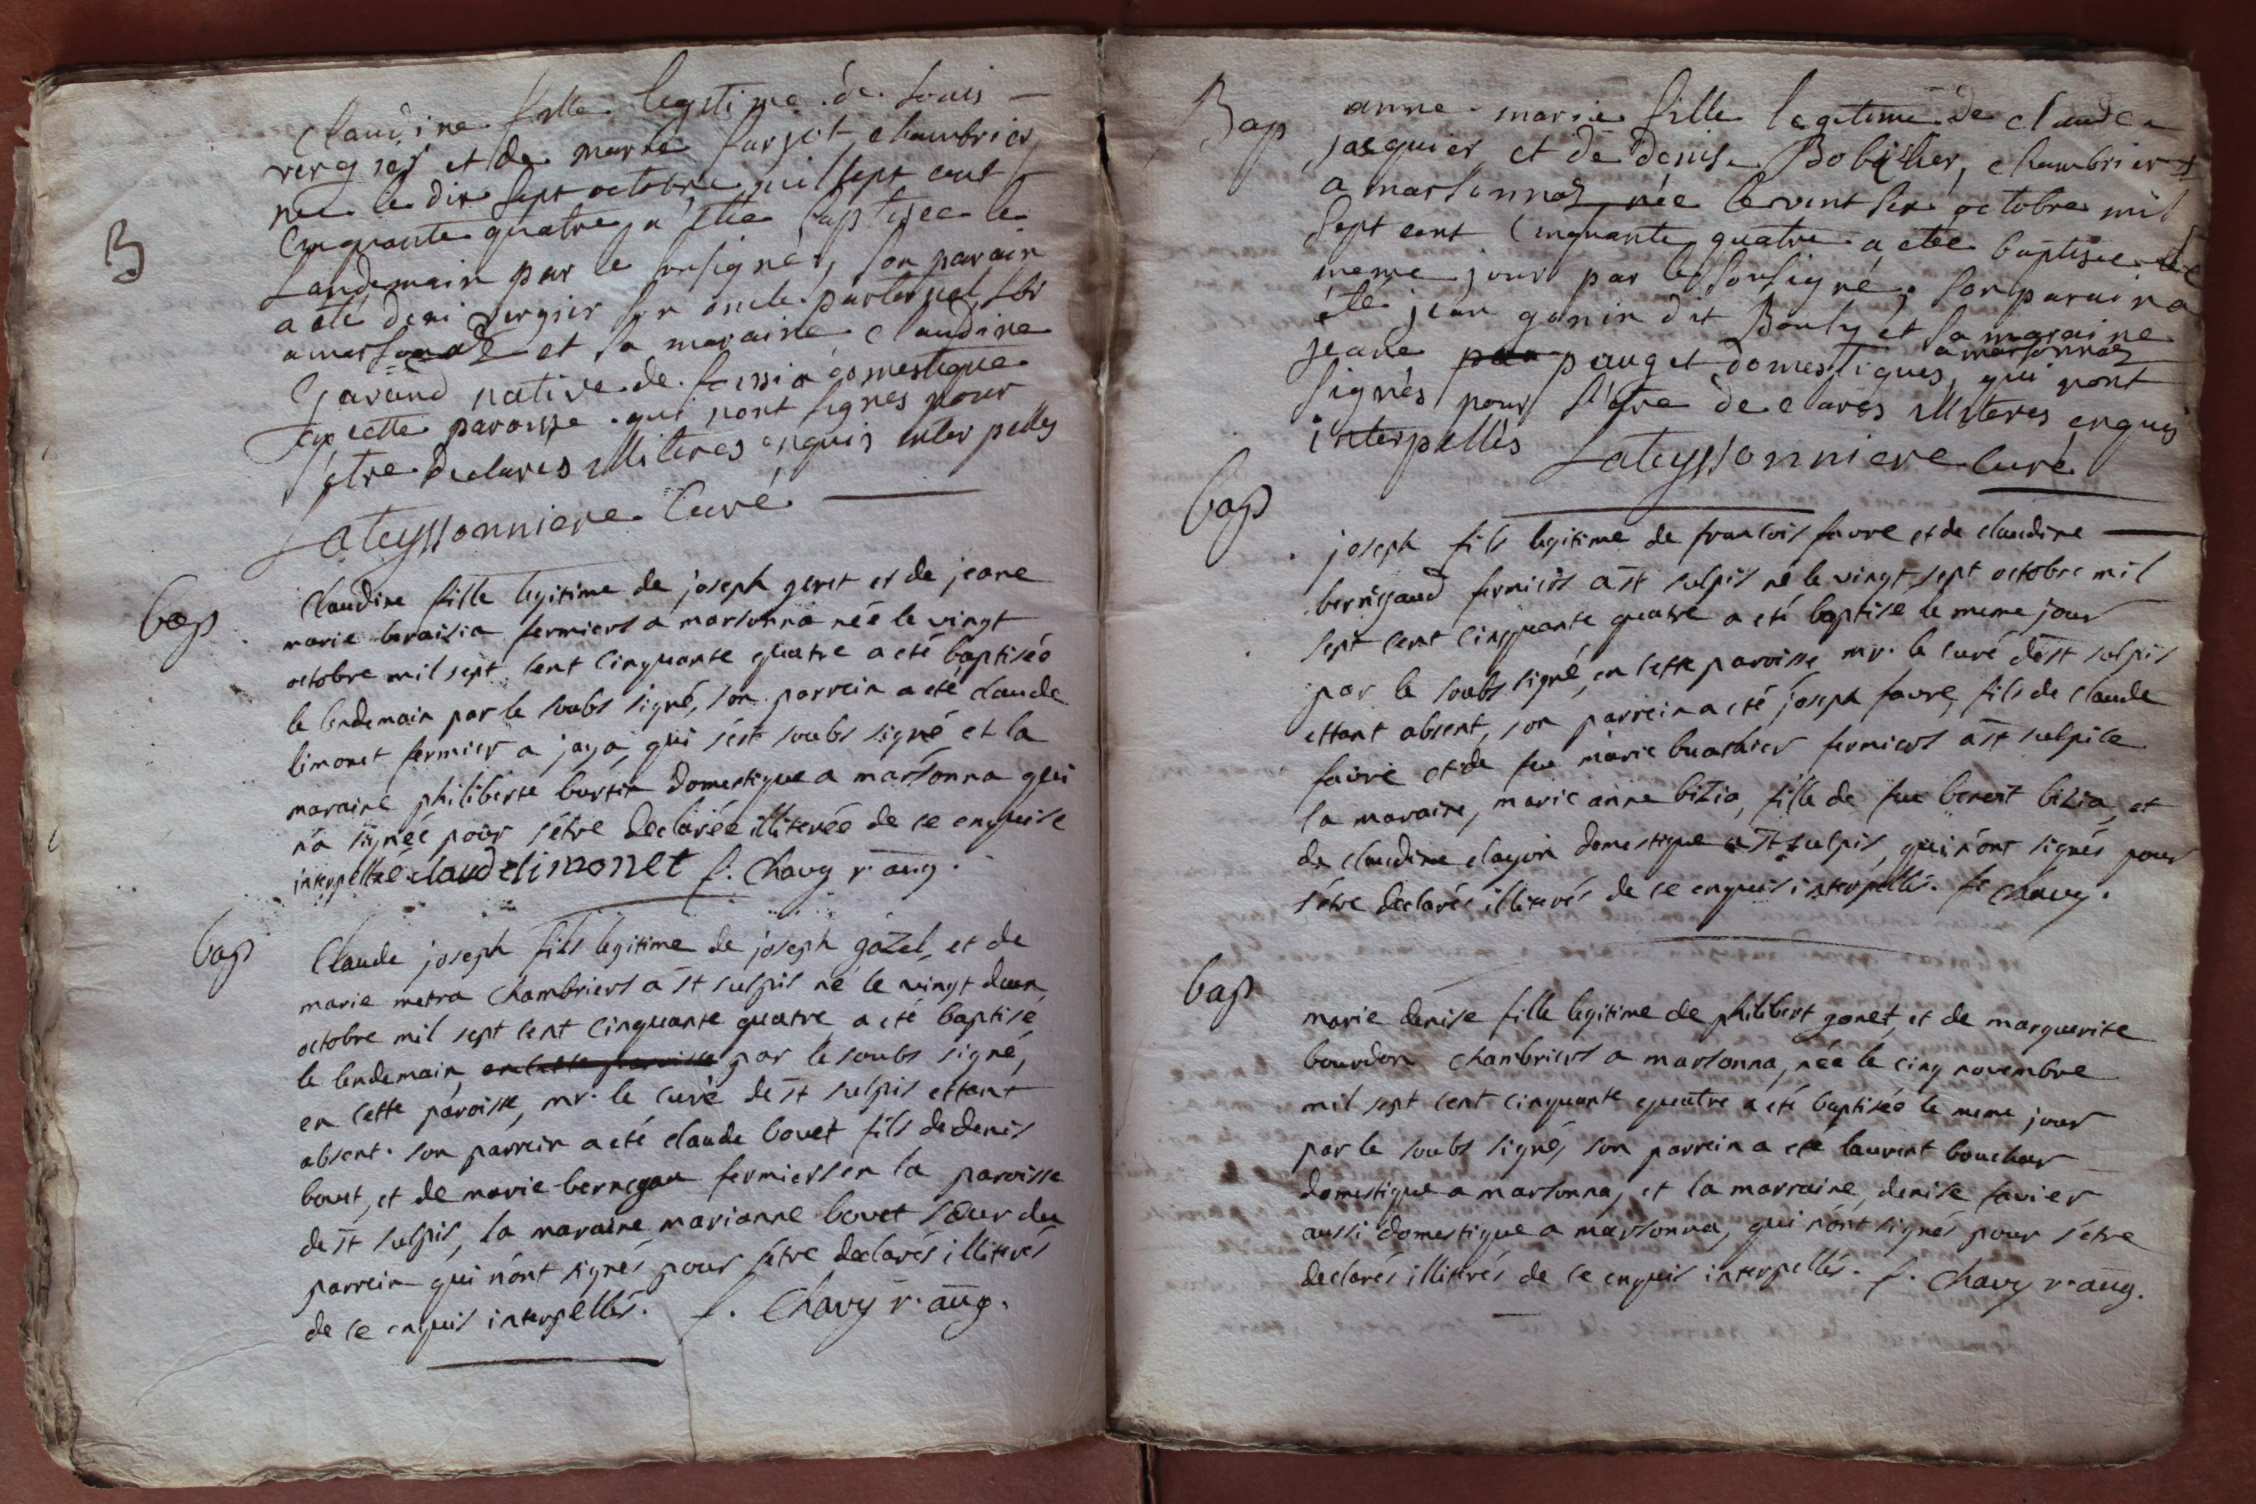 B
Claudine fille legitime de Louis
vergier et de marie farjot chambrier
née le dix sept octobre mil sept cent
Cinquante quatre a étée baptisée le
Landemain par le sousigné, son parain
a été deni vergier son oncle paternel
amarsonnas et sa maraine Claudine
native de domestique
cette paroisse qui nont signés pour
s'etre declares illiteres enquis interpelles
Lateyssonniere Curé
bap
Claudine fille legitime de joseph geret et de jeane
marie beraisia fermiers a marsonna née le vingt
octobre mil sept cent cinquante quatre a été baptiséé
le lendemain par le soubs signé, son parrein a eté claude
limonet fermier a jaya, qui s'est soubs signé et la
maraine philiberte burtin domestique a marsonna qui
n'a signée pour s'étre declarée illiterée de ce enquise
interpellée claudelimonet f. Chavy r. aug.
bap
Claude joseph fils legitime de joseph gazel, et de
marie metra chambriers a st sulpis né le vingt deux
octobre mil sept cent cinquante quatre a eté baptisé
le lendemain, en cette paroisse par le soubs signé,
en cette paroisse, mr. le curé de st sulpis ettant
absent. son parrein a eté claude bovet fils dedenis
bovet, et de marie bernigau fermiers en la paroisse
de st sulpis, la maraine marianne bovet sœur du
parrein qui n'ont signés pour s'étre declarés illiterés
de ce enquis interpellés. f. Chavy r. aug.
Bap
anne marie fille legitime de claude
jacquier et de denise Bobillier, chambriers
a marsonnas née le vint six octobre mil
sept cent Cinquante quatre a etée baptisée le
meme jour par le sousigné, son parain a
été jean gonin dit Bouly et sa maraine
jeane pau pauget domestiques, amarsonnas qui nont
signés pour s'etre declares illiteres enquis
interpellés Lateyssonniere Curé
bap
joseph fils legitime de francois favre et de claudine
bernigaud fermiers a st sulpis né le vingt sept octobre mil
sept cent cinquante quatre a eté baptisé le meme jour
par le soubs signé, en cette paroisse mr. le curé de st sulpis
ettant absent, son parrein a eté joseph favre, fils de claude
favre et de feu marie buathier fermiers a st sulpice
la maraine, marie anne bizia, fille de feu benoit bizia, et
de claudine clayon domestique a st sulpis, qui n'ont signés pour
s'étre declarés illiterés de ce enquis interpellés. f. Chavy.
bap
marie denise fille legitime de philibert gonet, et de marguerite
bourdon chambriers a marsonna, née le cinq novembre
mil sept cent cinquante quatre a eté baptiséé le meme jour
par le soubs signé, son parrein a eté laurent bouchar
domestique a marsonna, et la marraine, denise favier
aussi domestique a marsonna, qui n'ont signés pour s'étre
declarés illiterés de ce enquis interpellés. f. Chavy r. aug.